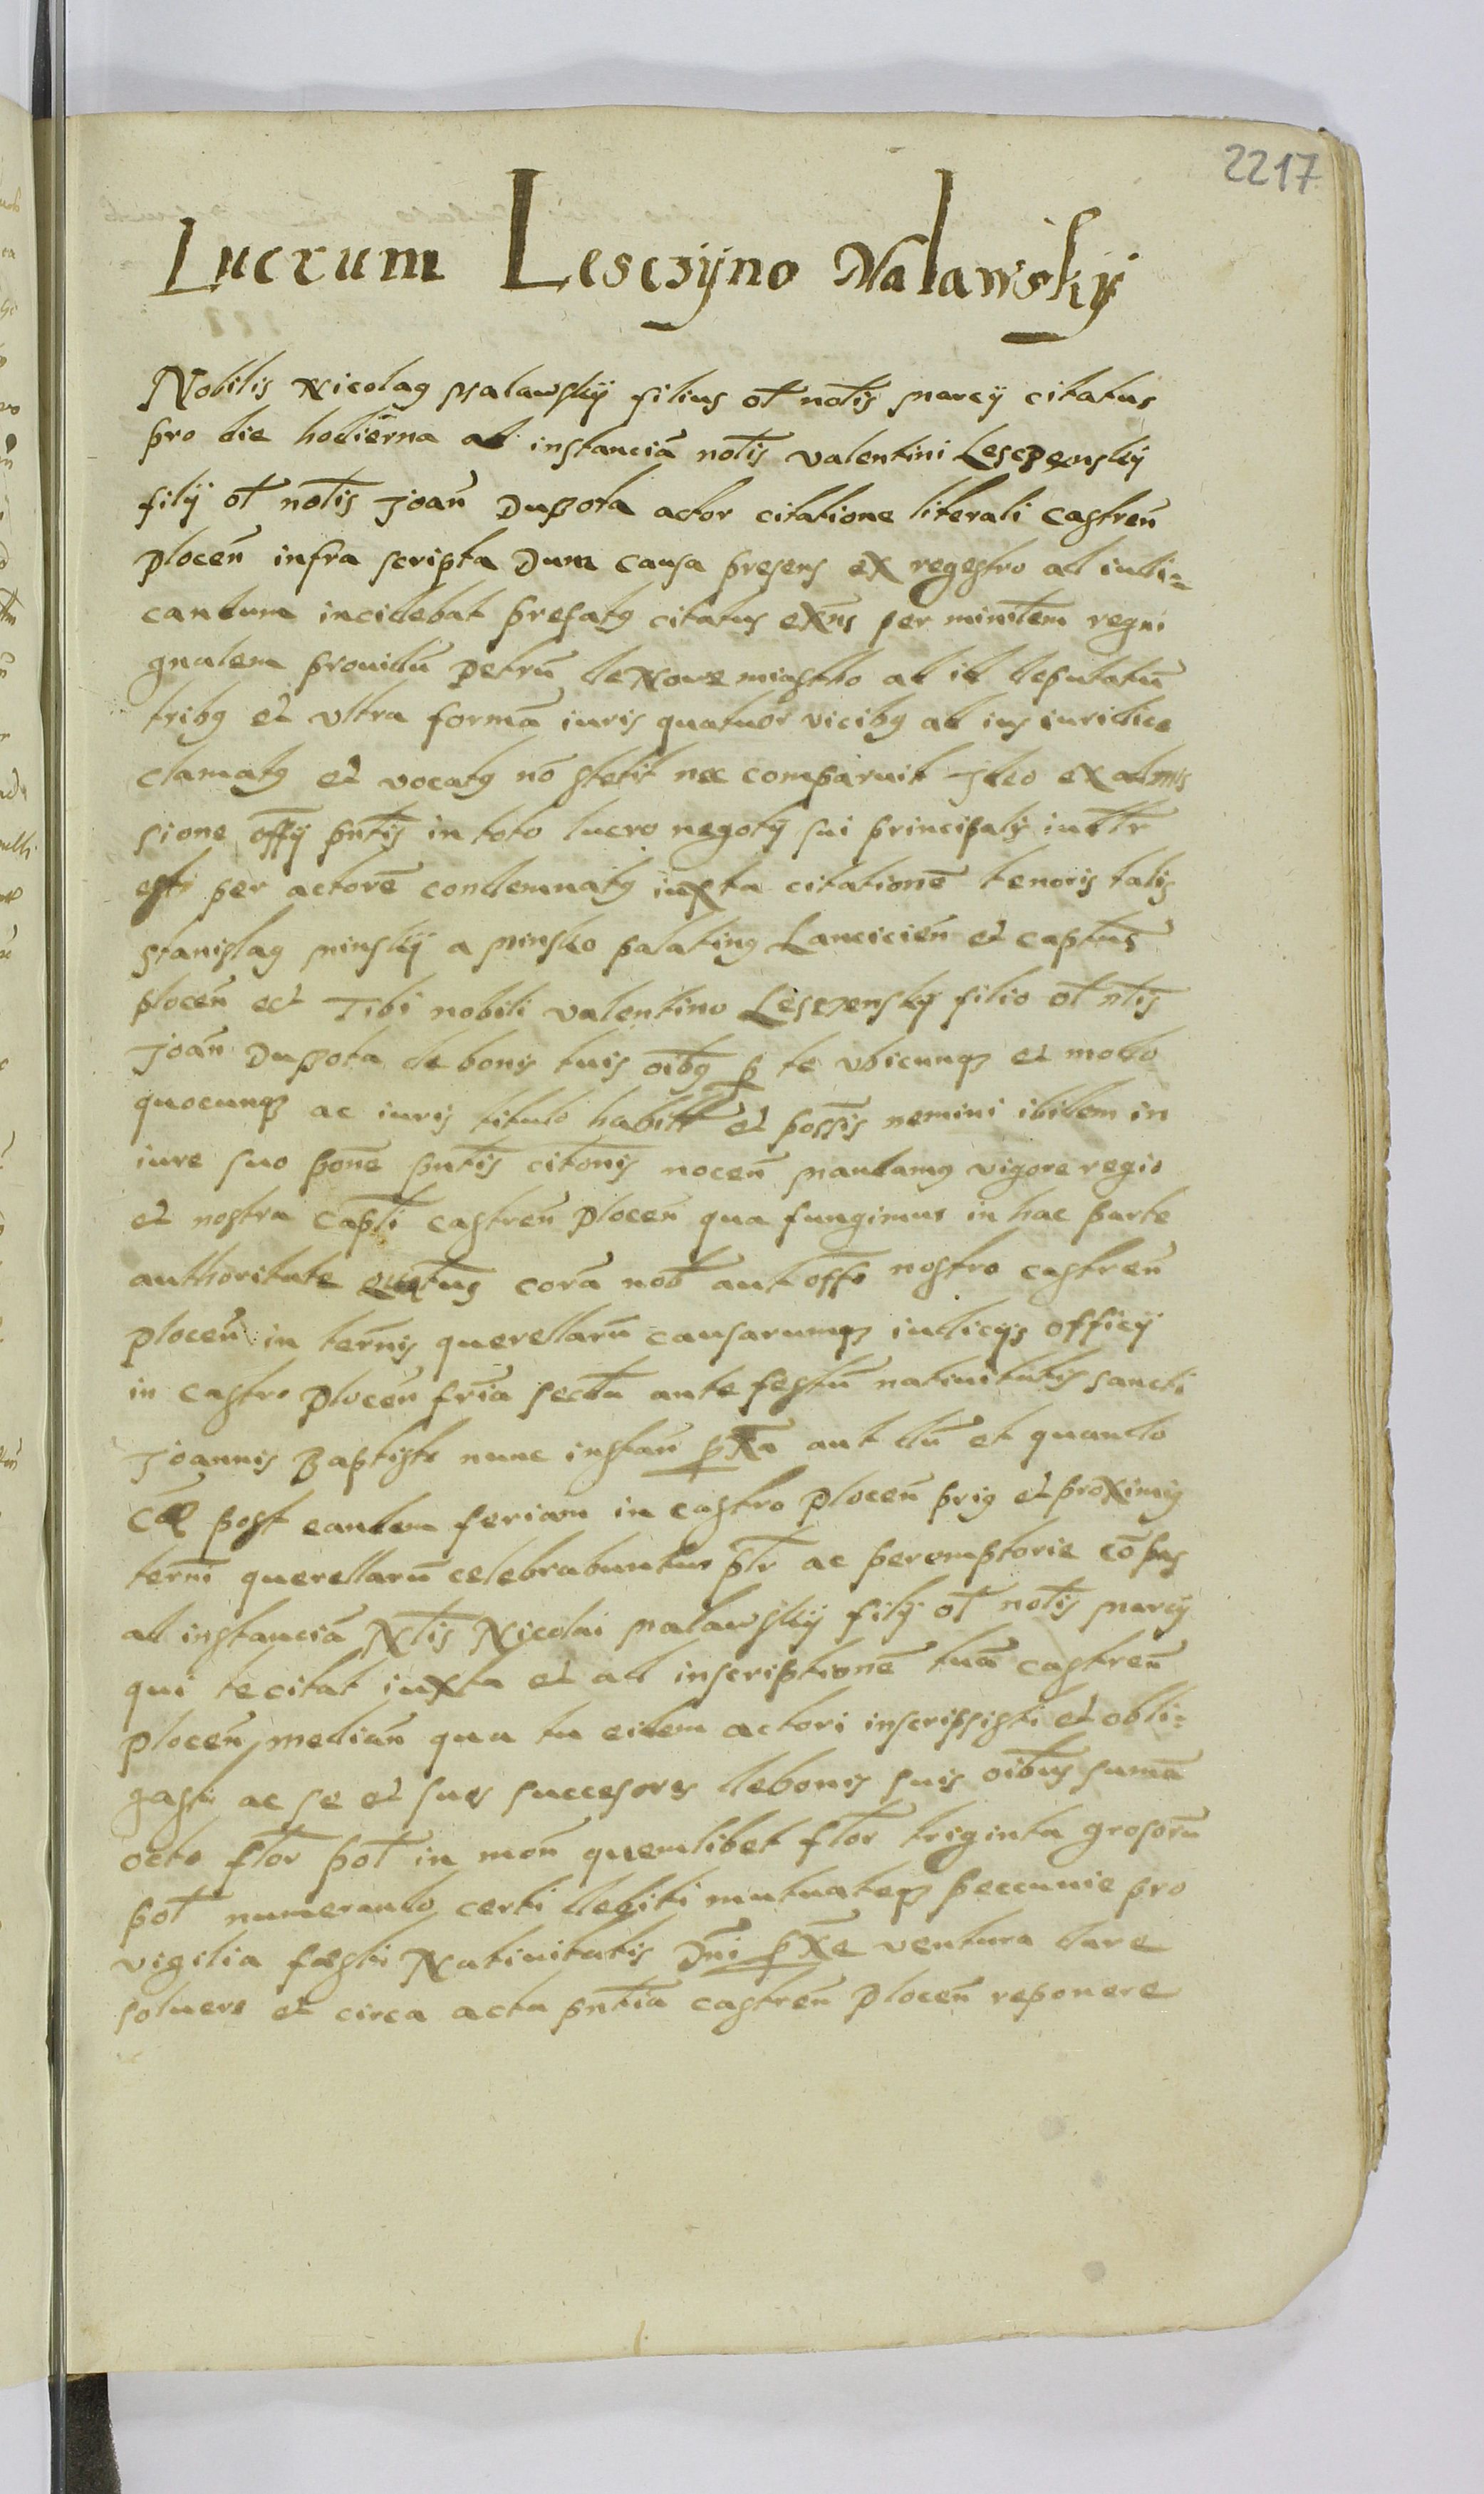 2217
Lucrum Lesczÿno Malawskÿ
Nobilis Nicolaꝰ Malawskÿ filius ol̃ nołis Marcÿ citatus
pro die hodierna ad instanciã nołis Valentini Lesczenskÿ
filÿ ol̃ nołis Joañ Duszota actor citatione literali Castreñ
Ploceñ infra scripta Dum causa presens ex regestro ad iudi=
candum incidebat prefatꝰ citatus exñs per minĩstem regni
gnalem prouidũ Petrũ de Nowemiastho ad id deputatũ
tribꝰ et vltra formã iuris quatuor vicibꝰ ad ius iuridice
clamatꝰ et vocatꝰ nõ stetit nec comparuit Ideo ex admis
sione offÿ pñtis in toto lucro negotÿ sui principalis iudłr
est per actorẽ condemnatꝰ iuxta citationẽ tenoris talis
Stanislaꝰ Minskÿ a Minsko palatinꝰ Lancicieñ et capłnus
Ploceñ ect Tibi nobili Valentino Lesczenskÿ filio ol̃ nłis
Joañ Duszota de bonis tuis oĩbꝰ ꝑ te vbicunqꝫ et modo
quocunqꝫ ac iuris titulo habitt et possis nemini ibidem in
iure suo põne pñtis citõnis noceñ mandamꝰ vigore regio
et nostra Capłi castreñ Ploceñ qua fungimur in hac parte
authoritate quatũs corã nob̃ aut offo nostro castreñ
Ploceñ in termĩs querellarũ causarumqꝫ iudicÿs officÿ
in castro Ploceñ frĩa secũda ante festũ natiuitatis sancti
Joannis Baptiste nunc instañ ꝓxa aut dũ et quando
post eandem feriam in castro Ploceñ priꝰ et proximiꝰ
termĩ querellarũ celebrabuntur pł̃r ac peremptorie cõpas
ad instanciã Nłis Nicolai Malawskÿ filÿ ol̃ nołis Marcÿ
qui te citat iuxta et ad inscriptionẽ tuã castreñ
Ploceñ mediañ qua tu eidem actori inscripsisti et obli=
gasti ac se et suos succesores de bonis suis oĩbus sumã
octo flor̃ pol̃ in moñ quemlibet flor̃ triginta grosorũ
pol̃ numerando certi debiti mutuateqꝫ peccunie pro
vigilia fæsti Natiuitatis Dñi ꝓxe ventura dare
soluere et circa acta pñtia castreñ Ploceñ reponere